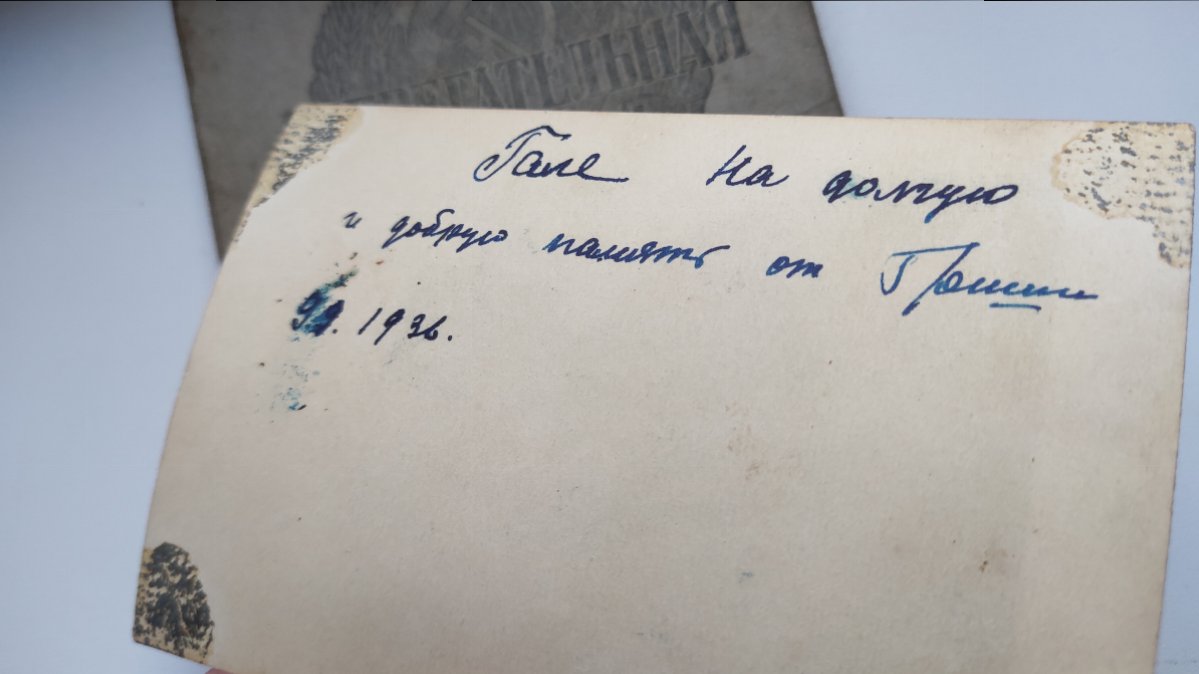 ГАТЕЛЬНАЯ
Гале на долгую
и добрую память от Гоши
1936.